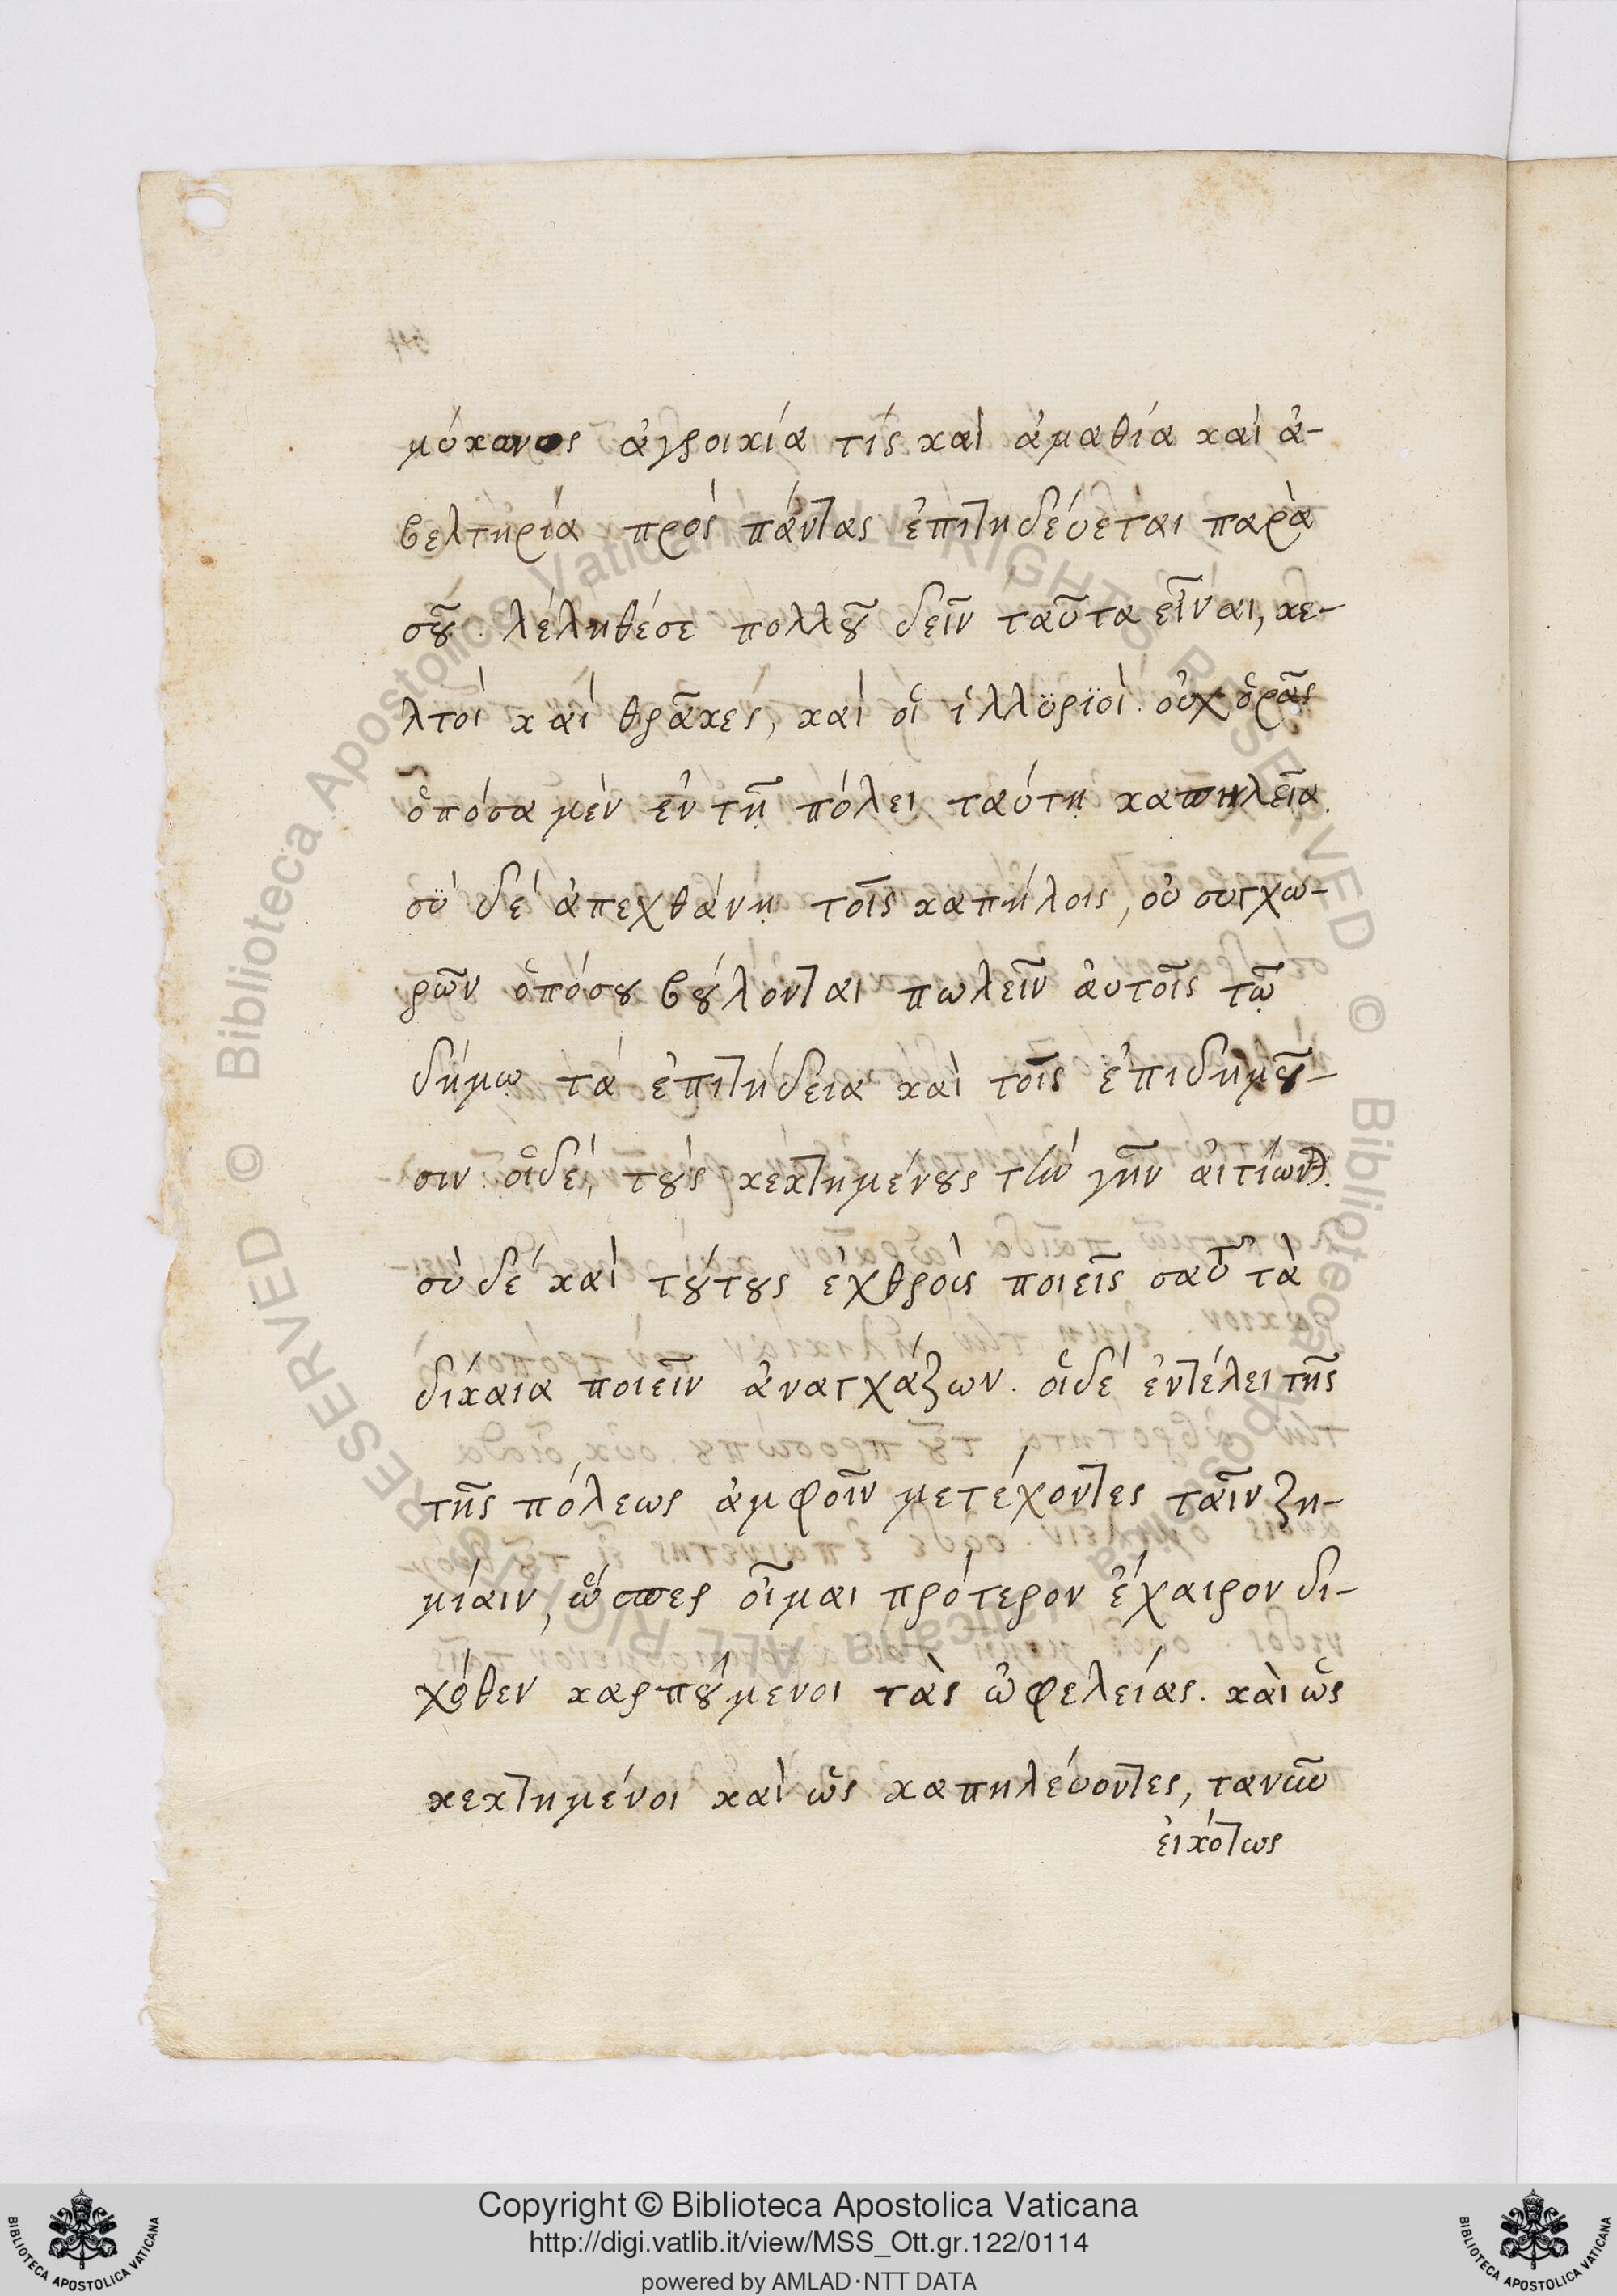 μύκανος ἀγροικία τίς καὶ ἀμαθία καὶ ἀ-
βελτηρία πρὸς πάντας ἐπιτηδέυεται παρὰ
σοῦ. λέληθέσε πολλοῦ δεῖν ταῦτα εἶναι, κε-
λτοὶ καὶ θρᾶκες, καὶ οἱ ἰλλϋρϊοὶ. οὐχ ὁρᾶς
ὁπόσα μὲν ἐν τῇ πόλει ταύτῃ καπηλεῖα.
σὺ δὲ ἀπεχθάνῃ τοῖς καπήλοις, οὐ συγχω-
ρῶν ὁπόσου βούλονται πωλεῖν ἀυτοῖς τῷ
δήμῳ τὰ ἐπιτήδεια καὶ τοῖς ἐπιδημοῦ-
σιν. οἱδὲ, τοὺς κεκτημένους τὴν γῆν ἀιτίων).
σὺ δὲ καὶ τούτους ἐχθροὺς ποιεῖς σαυτ τὰ
δίκαια ποιεῖν ἀναγκάζων. οἱδὲ ἐντέλει τῆς
τῆς πόλεως ἀμφοῖν μετέχοντες ταῖν ζη-
μίαιν, ὥσπερ οἶμαι πρότερον ἔχαιρον δι-
χόθεν καρπούμενοι τὰς ὠφελείας. καὶ ὡς
κεκτημένοι καὶ ὡς καπηλέυοντες, τανῦν
εἰκότως
Copyright © Biblioteca Apostolica Vaticana
http://digi.vatlib.it/view/MSS_Ott.gr.122/0114
powered by AMLAD·NTT DATA
BIBLIOTECA APOSTOLICA VATICANA
BIBLIOTECA APOSTOLICA VATICANA